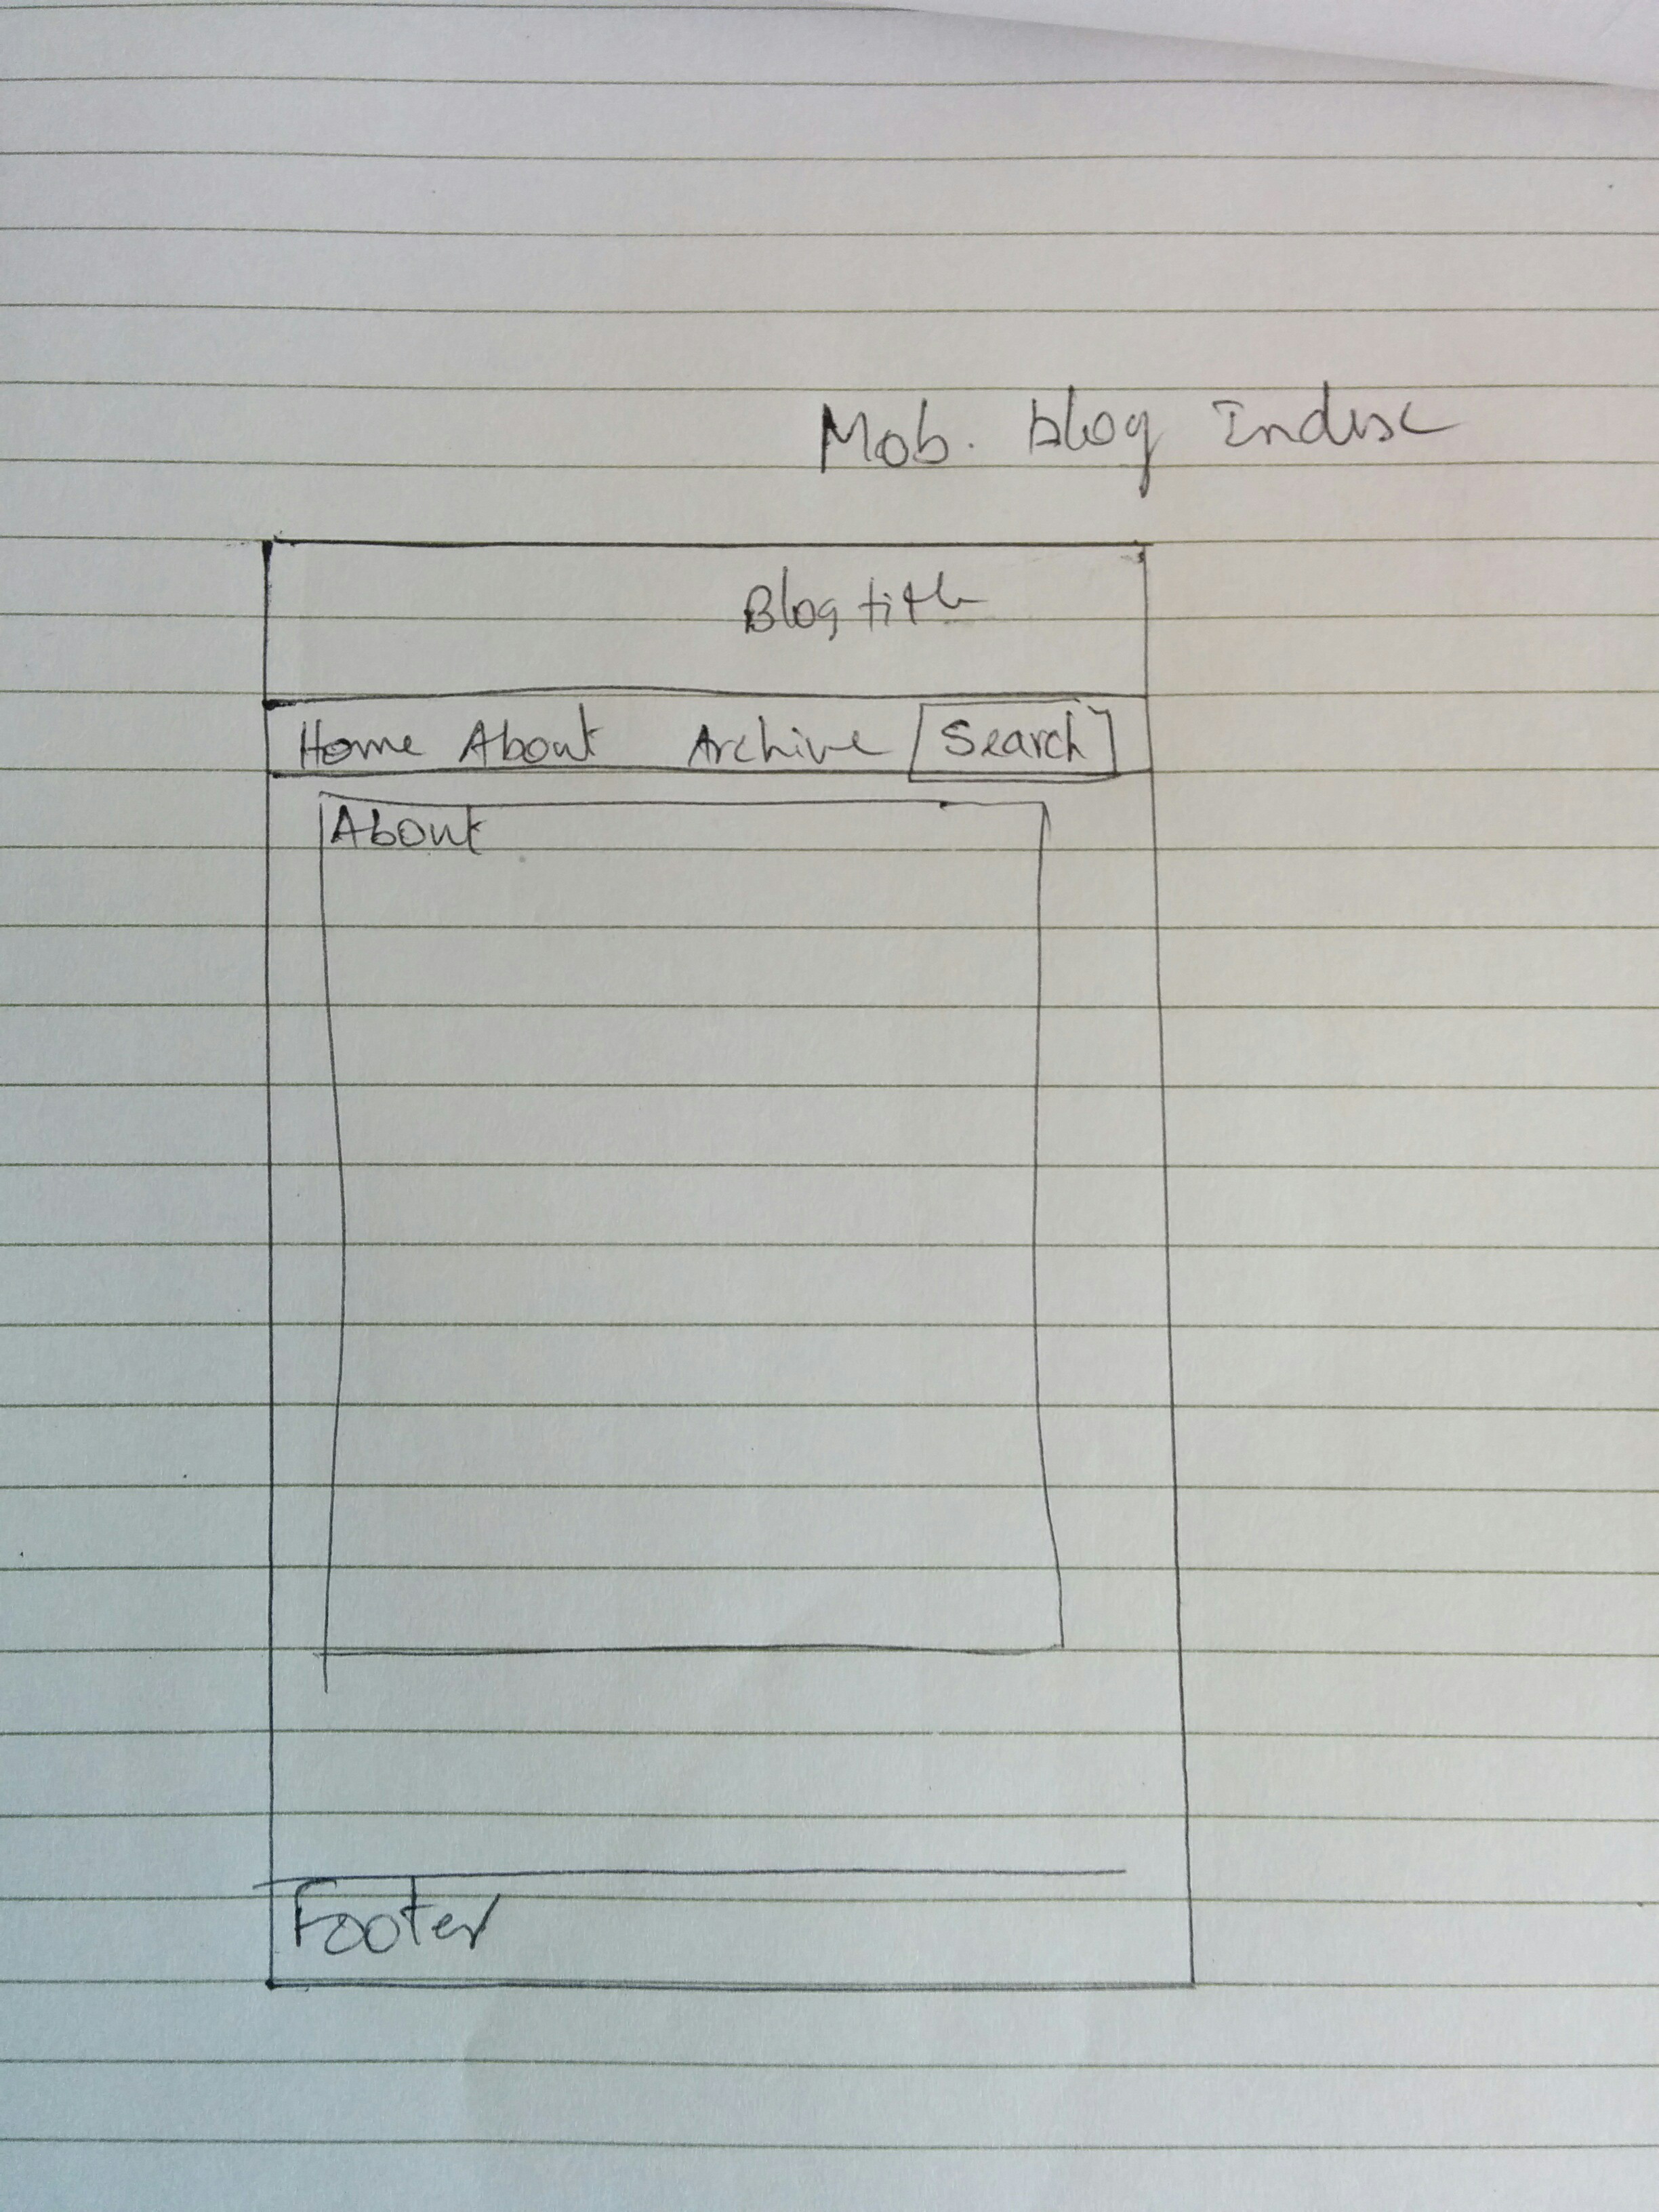 Mob. Blog Index
Blog title
Home About Archive Search
About
Footer